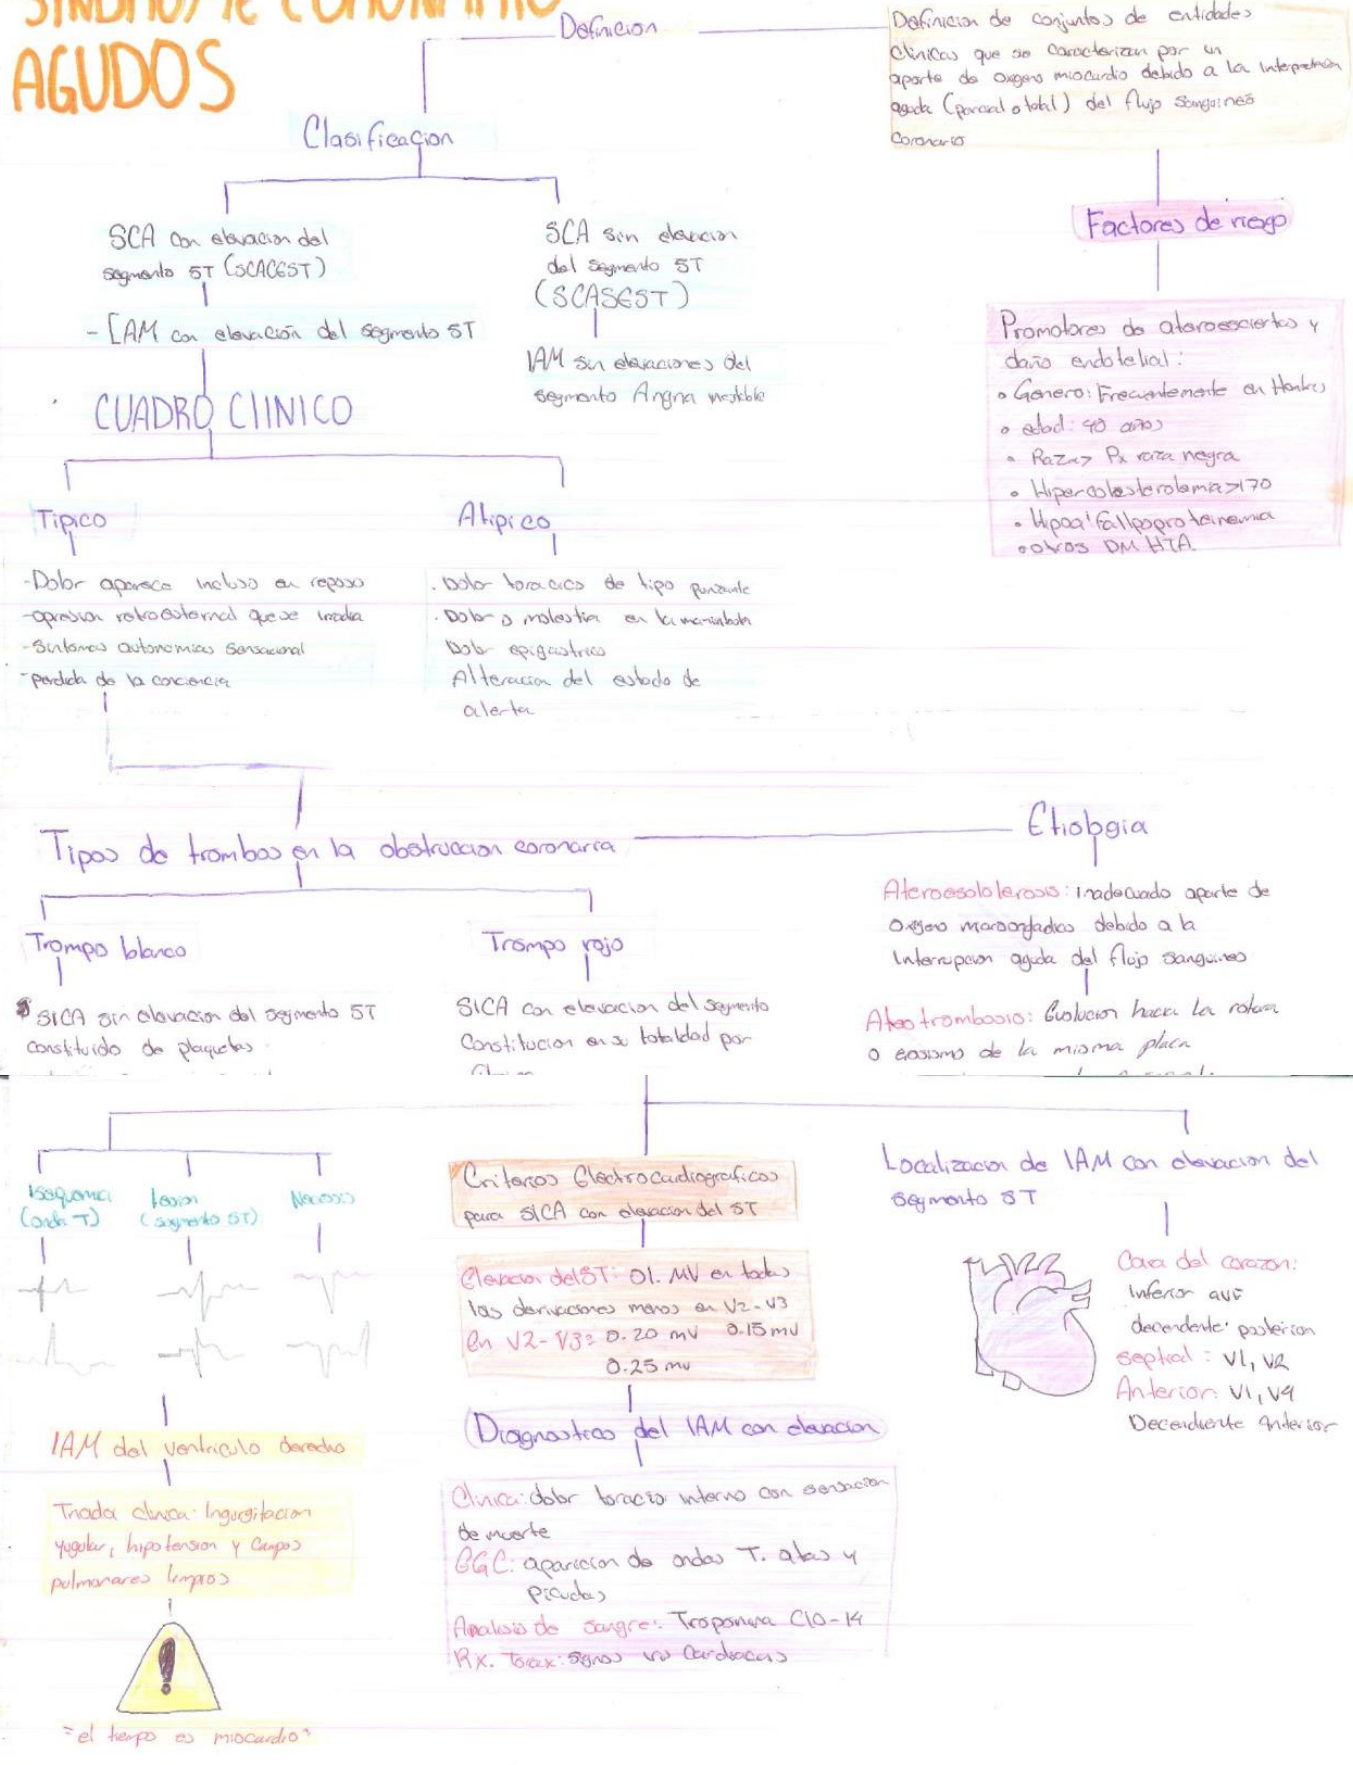 AGUDOS
Definicion
Definicion de conjuntos de entidades
Clinicas que se caracterizan por un
aporte de oxigeno miocardio debido a la interpretación
aguda (parcial o total) del flujo sanguineo
Coronario
Clasificaçion
SCA con elevacion del
segmento ST (SCACEST)
- IAM con elevación del segmento ST
SCA sin elevacion
del segmento ST
(SCASEST)
IAM sin elevaciones del
segmento Angina inestable
Factores de riesgo
Promotores de y
daño endotelial:
• Genero: Frecuentemente en Hombres
• edad: 40 años
• Raza> Px raza negra
• Hipercolesterolemia >170
•
• otros DM HTA
CUADRO CLINICO
Tipico
-Dolor aparece incluso en reposo
-opresion retroesternal que se irradia
-Sintomas autonomicos sensacional
-perdida de la conciencia
Atipico
. Dolor toracico de tipo punzante
. Dolor o molestia en la mandibula
Dolor epigastrico
Alteracion del estado de
alerta
Tipos de trombos en la obstruccion coronaria
Trompo blanco
SICA sin elevacion del segmento ST
constituido de plaquetas
Trompo rojo
SICA con elevacion del segmento
Constitucion en su totalidad por
Etiologia
inadecuado aporte de
oxigeno debido a la
Interrupcion aguda del flujo sanguineo
Aterotrombosis: Evolucion hacia la rotura
o de la misma placa
Isequemia
(onda T)
Lesion
(segmento ST)
Necrosis
IAM del ventriculo derecho
Triada clinica: Ingurgitacion
yugular, hipotension y Campos
pulmonares limpios
"el tiempo es miocardio"
Criterios Electrocardiograficos
para SICA con elevacion del ST
Elevacion del ST: 01. MV en todas
las derivaciones menos en V2-V3
en V2-V3= 0.20 mV 0.15mV
0.25 mv
Diagnostico del IAM con elevacion
Clinica: dolor toracico interno con sensacion
de muerte
EGC: aparicion de ondas T. altas y
Picudas
Analisis de sangre: Troponina C10-14
Rx. Torax: signos no Cardiacos
Localizacion de IAM con elevacion del
segmento ST
Cara del corazon:
Inferior AVF
decendente posterior
septral: V1, V2
Anterior: V1, V4
Decendiente Anterior